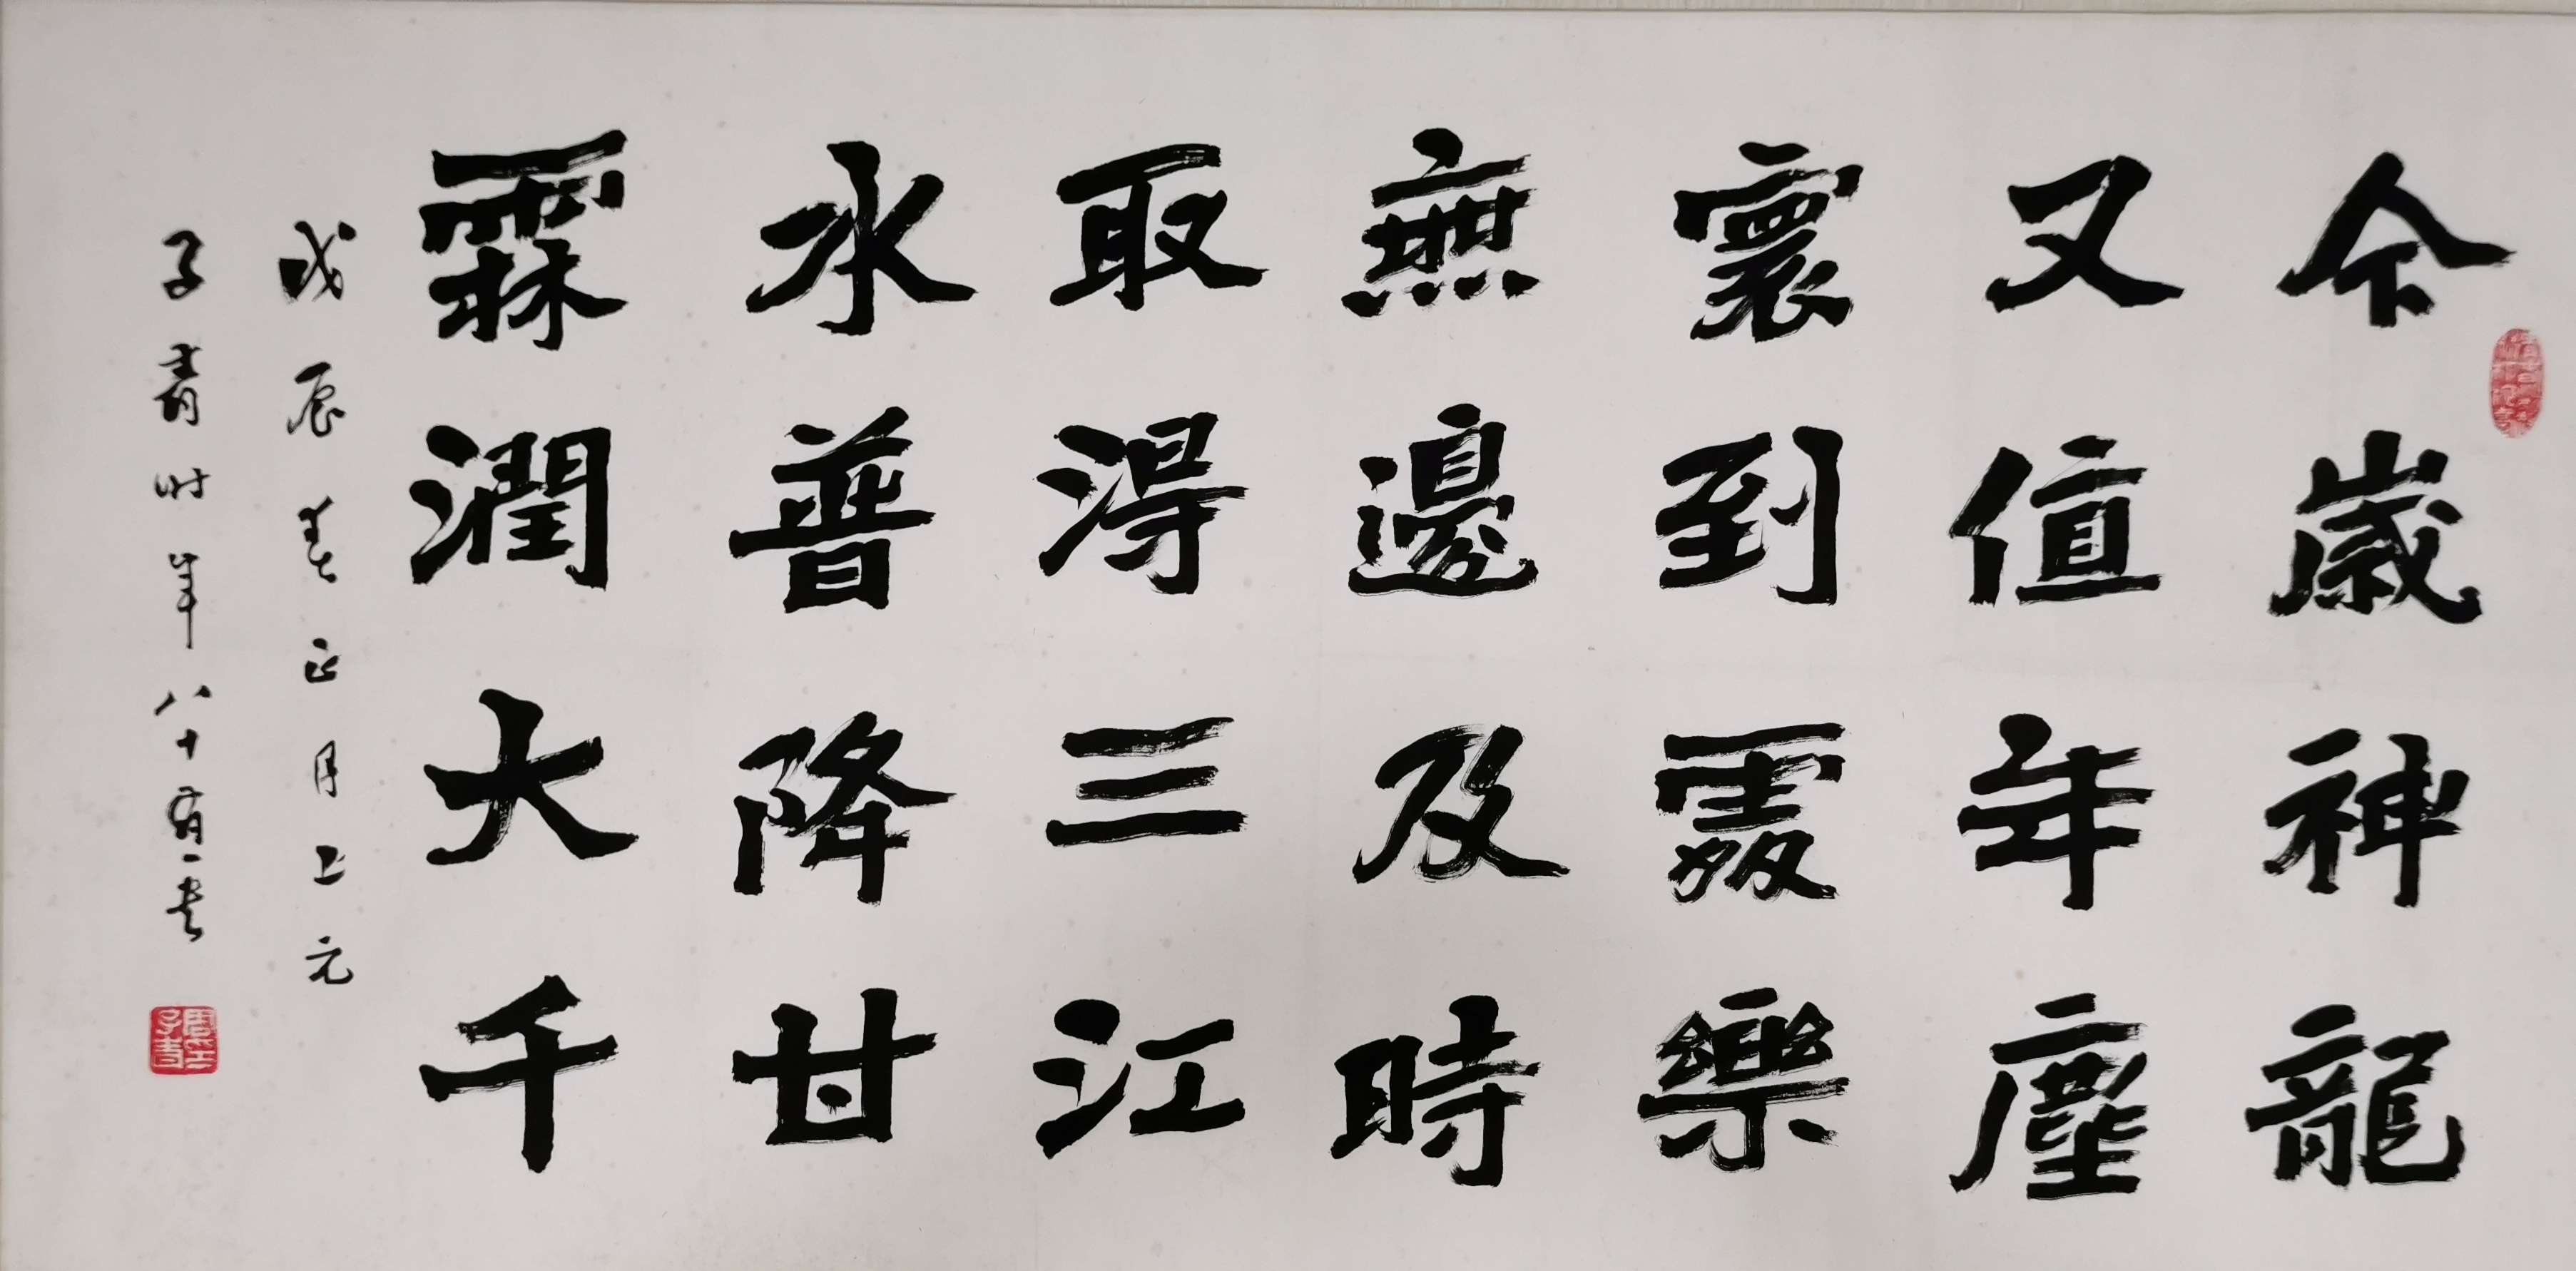 今歲神龍
又值年塵
寰到處樂
無邊及時
取得三江
水普降甘
霖潤大千
戊辰春正月上元
子青时年八十有一书